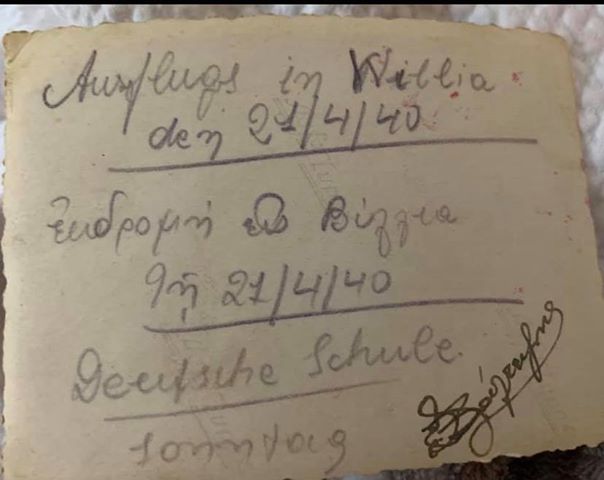 Ausflugs in Willia
den 21/4/40
Ἐκδρομή εἰς Βίλλια
τῇ 21/4/40
Deutsche Schule.
Sonntag